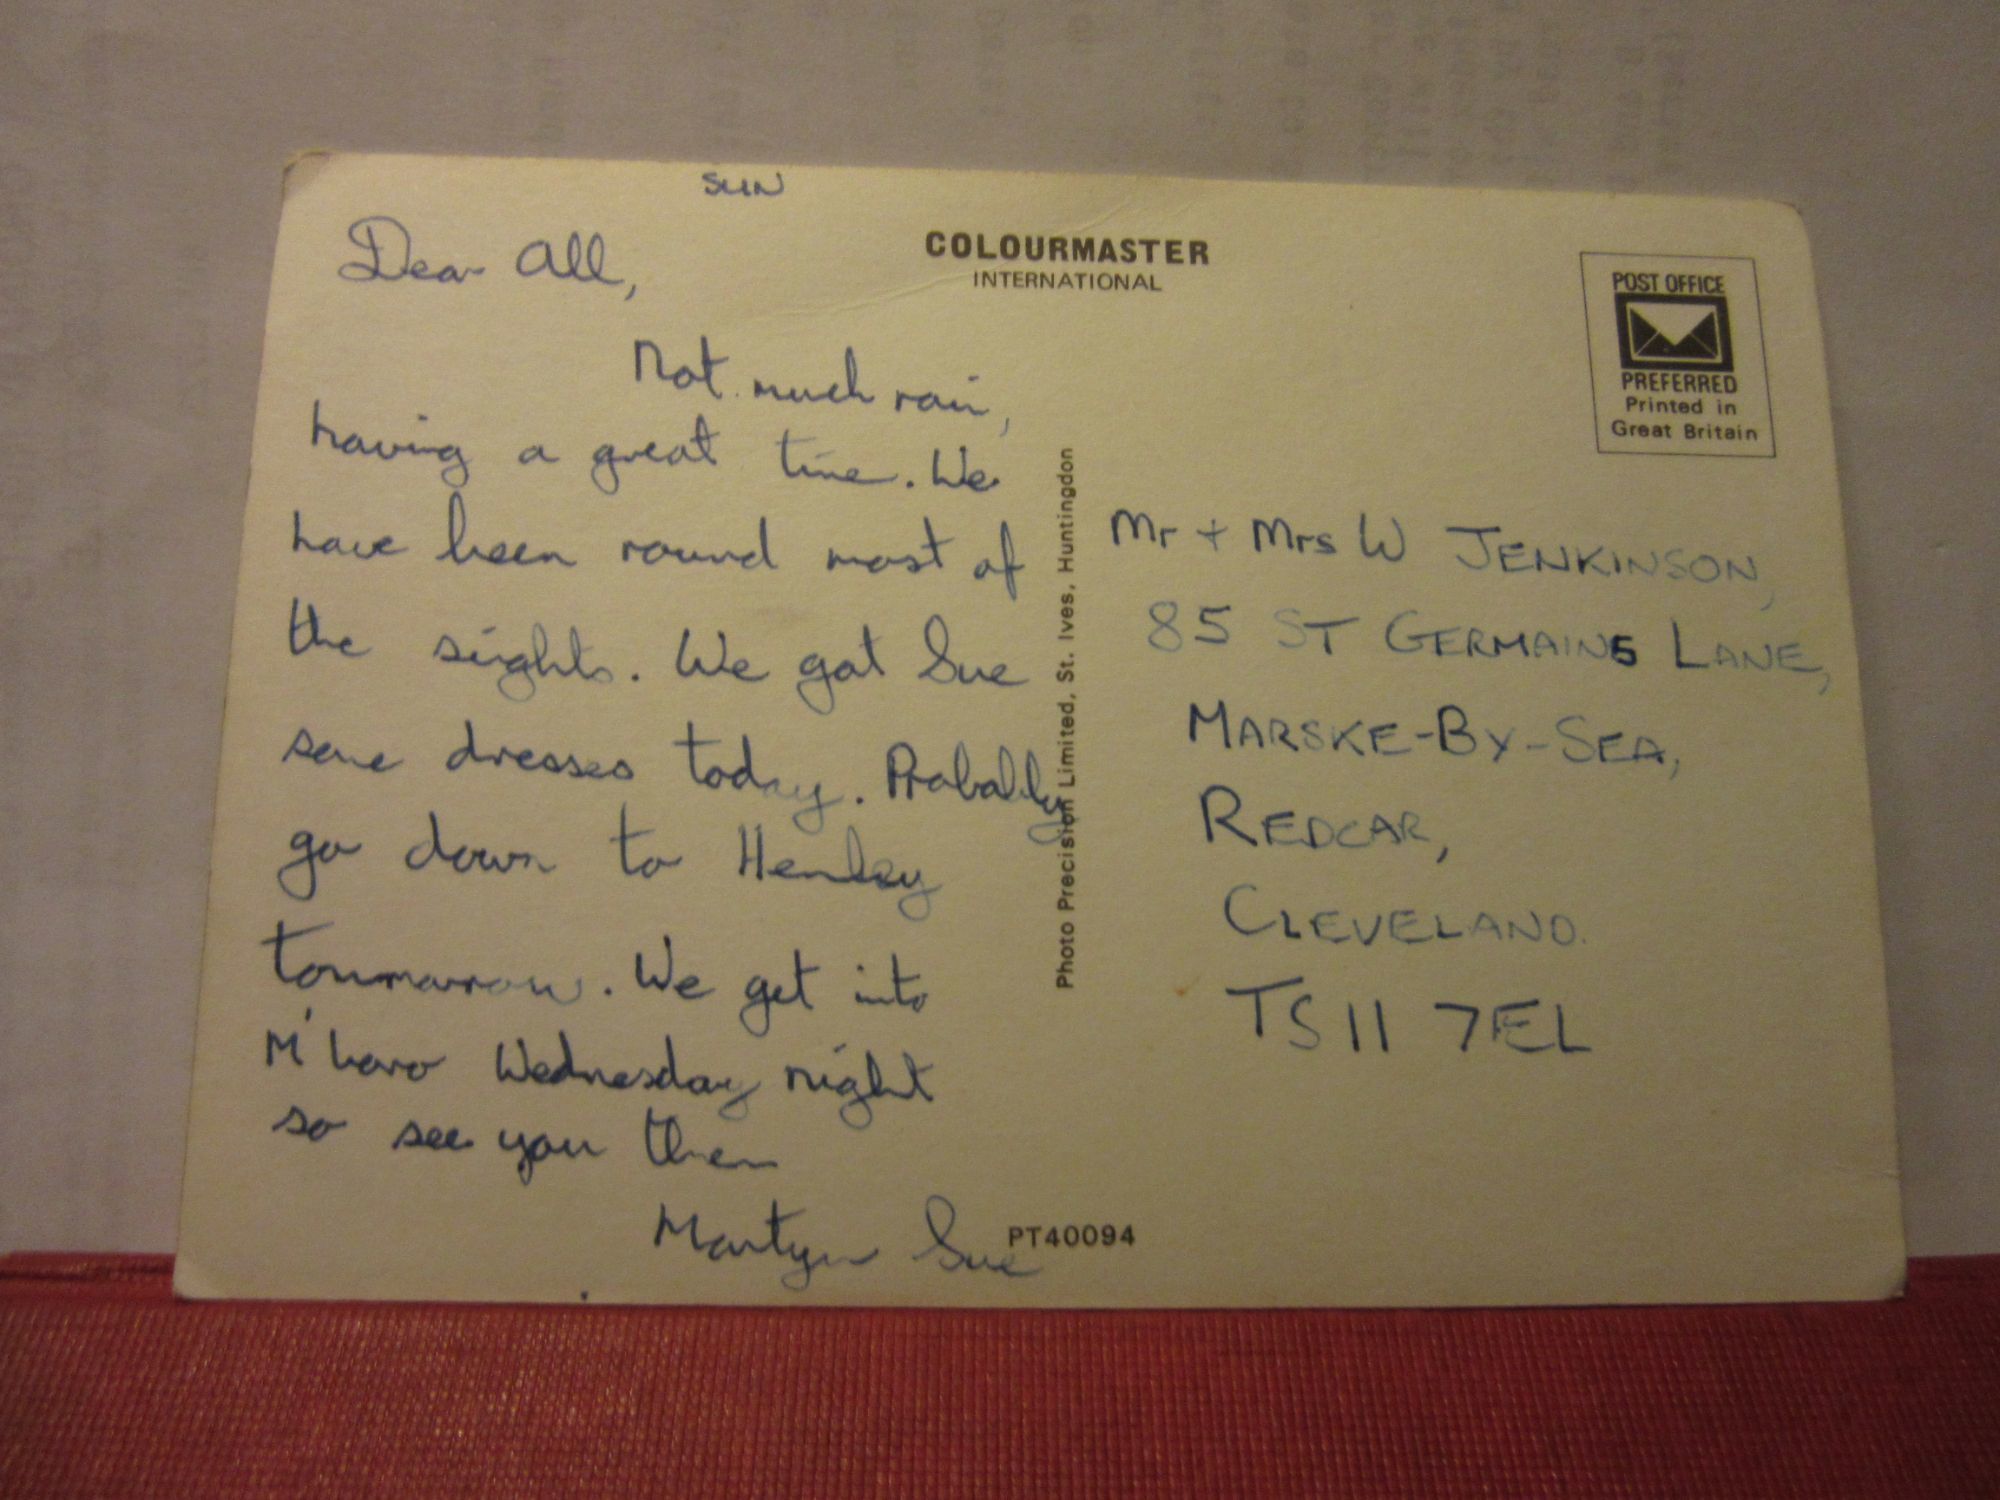 SUN
Dear All,
Not much rain,
having a great time. We
have been round most of
the sights. We got Sue
some dresses today. Probably
go down to Henley
tommorrow. We get into
M'boro Wednesday night
so see you then
Martyn Sue
COLOURMASTER
INTERNATIONAL
Photo Precision Limited, St. Ives, Huntingdon
PT40094
POST OFFICE
PREFERRED
Printed in
Great Britain
Mr + Mrs W JENKINSON,
85 ST GERMAINS LANE,
MARSKE-BY-SEA,
REDCAR,
CLEVELAND.
TS11 7EL